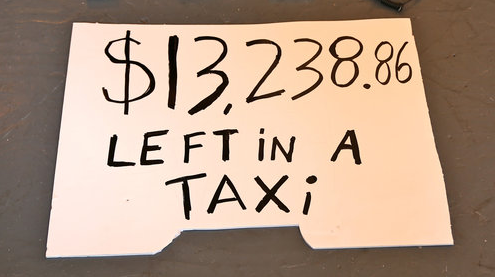 $13,238.86
LEFT iN A
TAXi